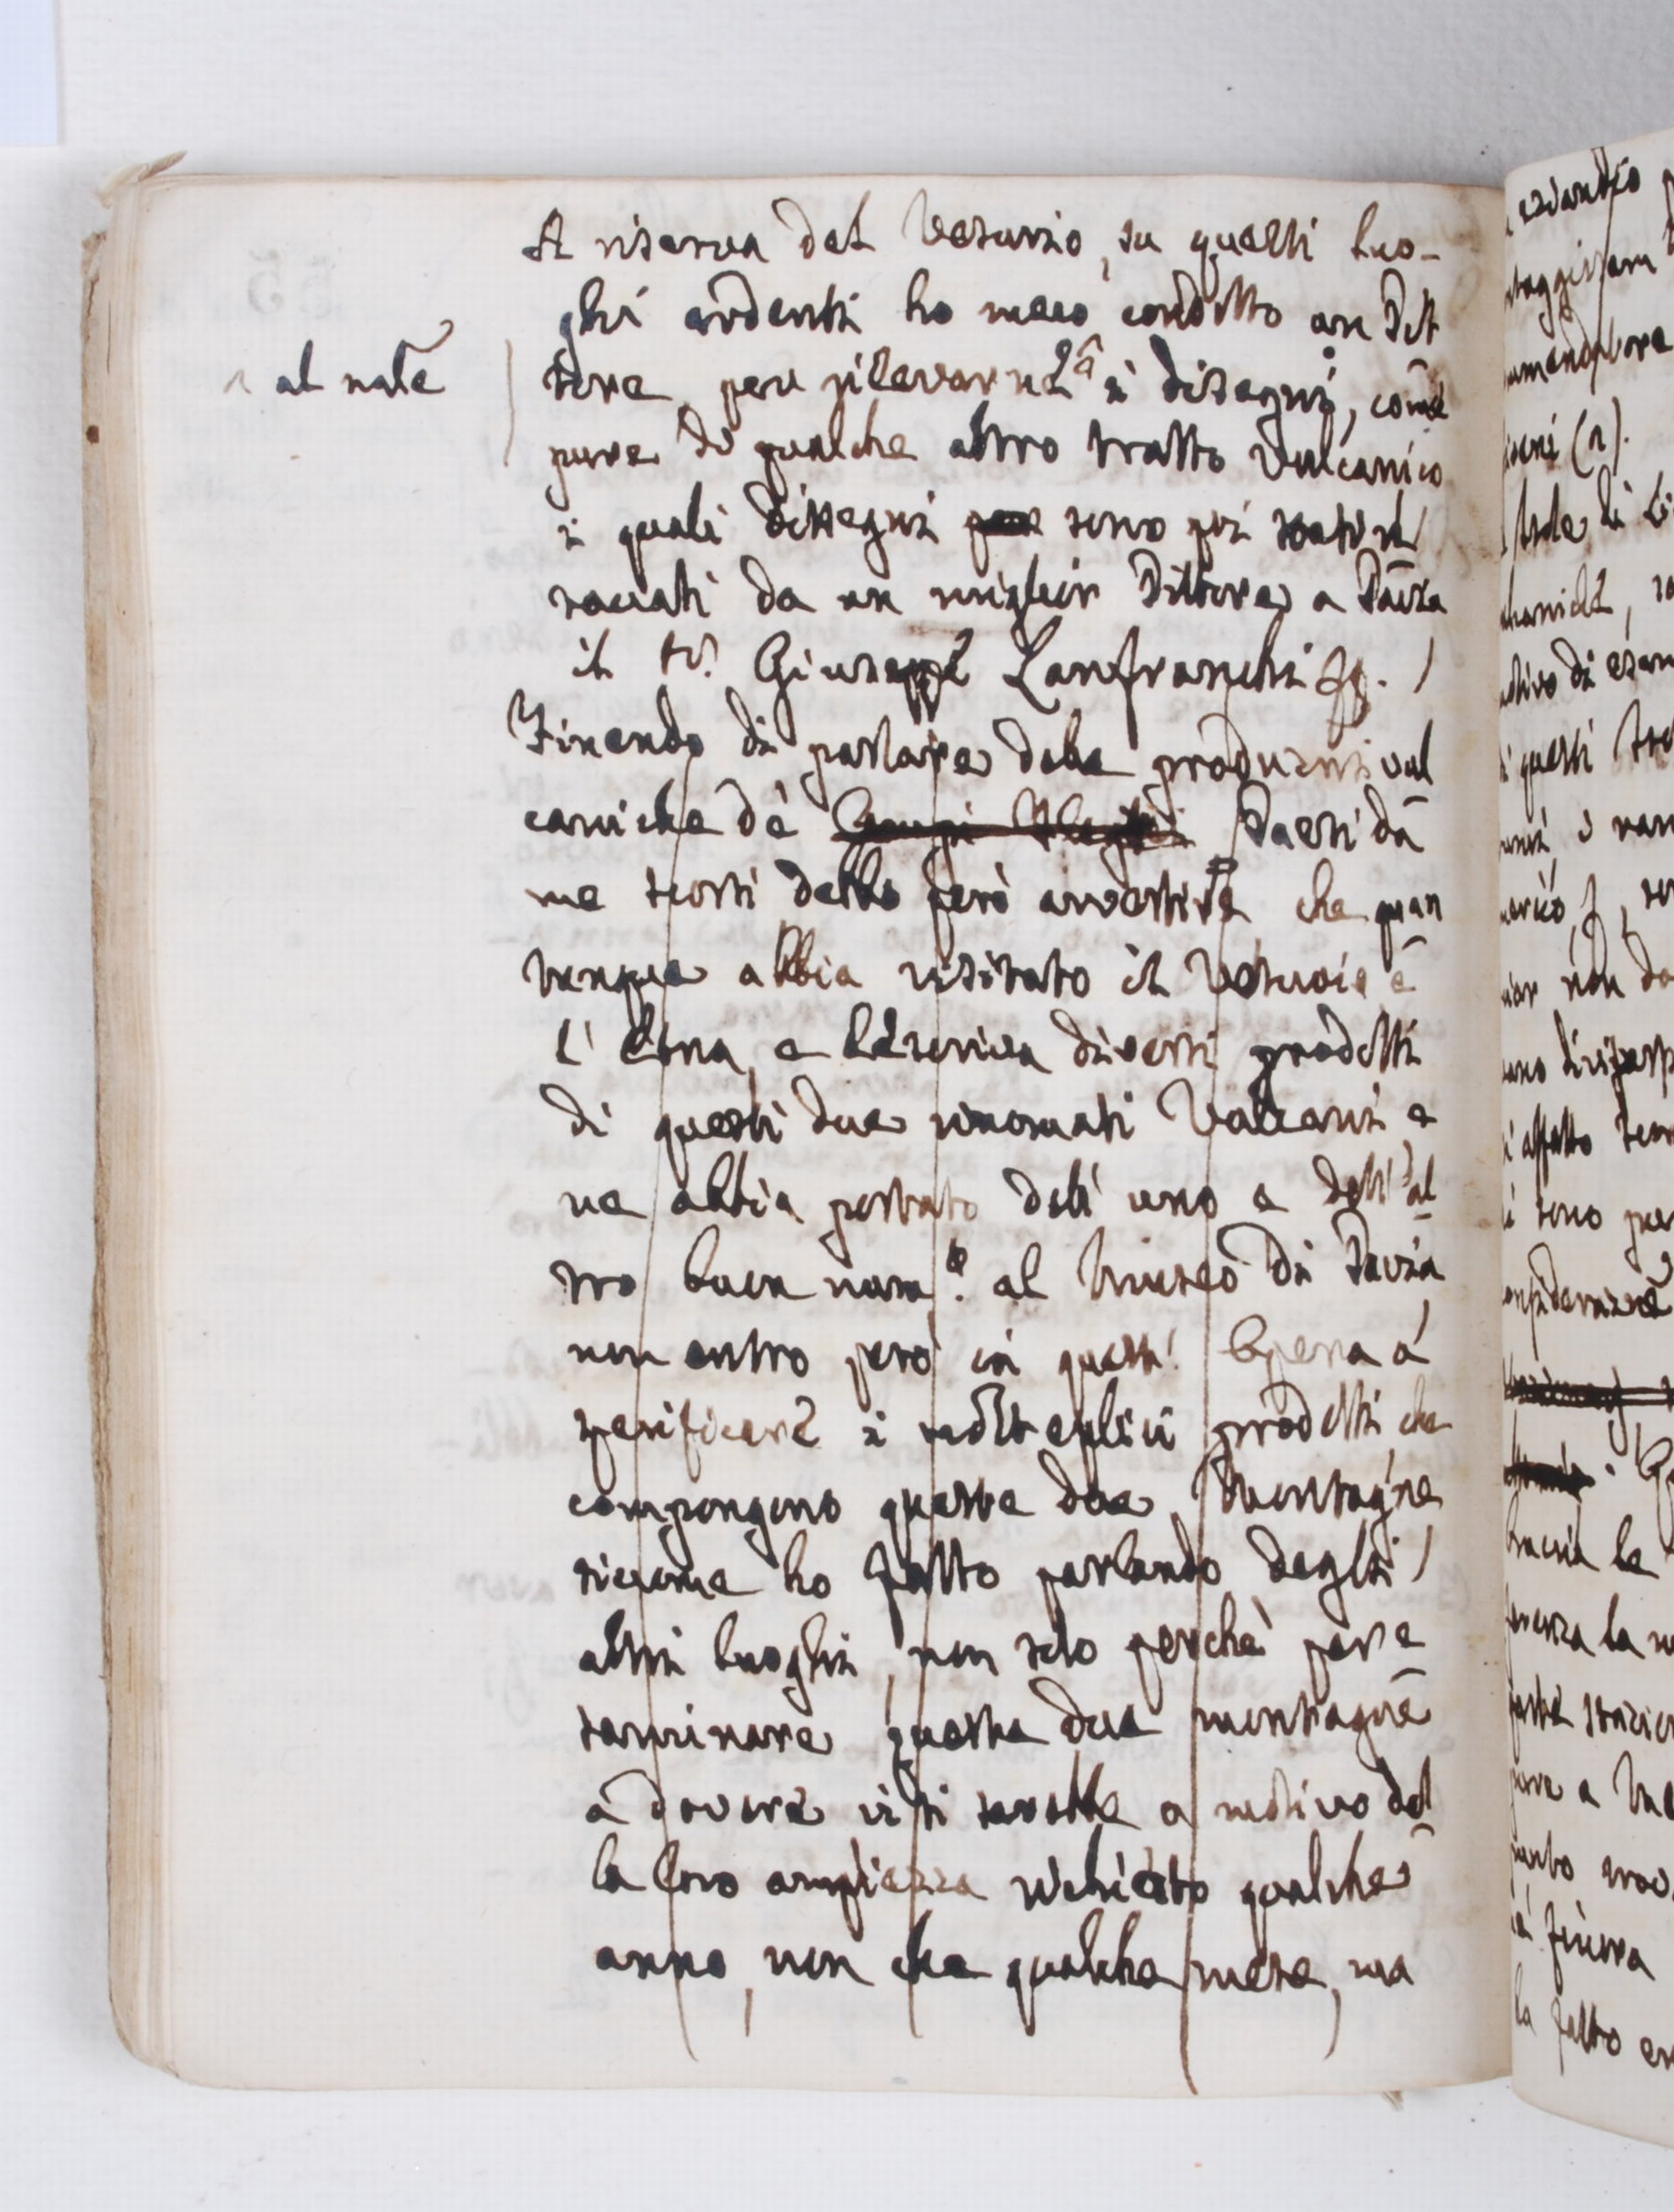 A riserva del Vesuvio, su questi luo-
ghi ardenti ho meco condotto un Pit
tore per rilevarne i disegni, come
al nale
pure di qualche altro tratto Vulcanico
i quali dissegni sono poi stati ri
toccati da un miglior Pittore a Pavia
il Sr. Giuseppe Lanfranchi
Finendo di parlare delle produzioni vul
caniche de' Campi Flegrei Paesi da
me scorsi debbo però avvertire che quan
tunque abbia visitato il Vesuvio e
l' Etna, e descriva diversi prodotti
di questi due rinomati Vulcani e
ne abbia portato dell' uno e dell' al
tro buon num.o al Museo di Pavia
non entro però in quest' Opera a
specificare i molteplici prodotti che
compongono queste due Montagne
siccome ho fatto parlando degli
altri luoghi, non solo perchè per e
saminare queste due montagne
a dovere vi si sarebbe a motivo del
la loro ampiezza richiesto qualche
anno, non che qualche mese, ma